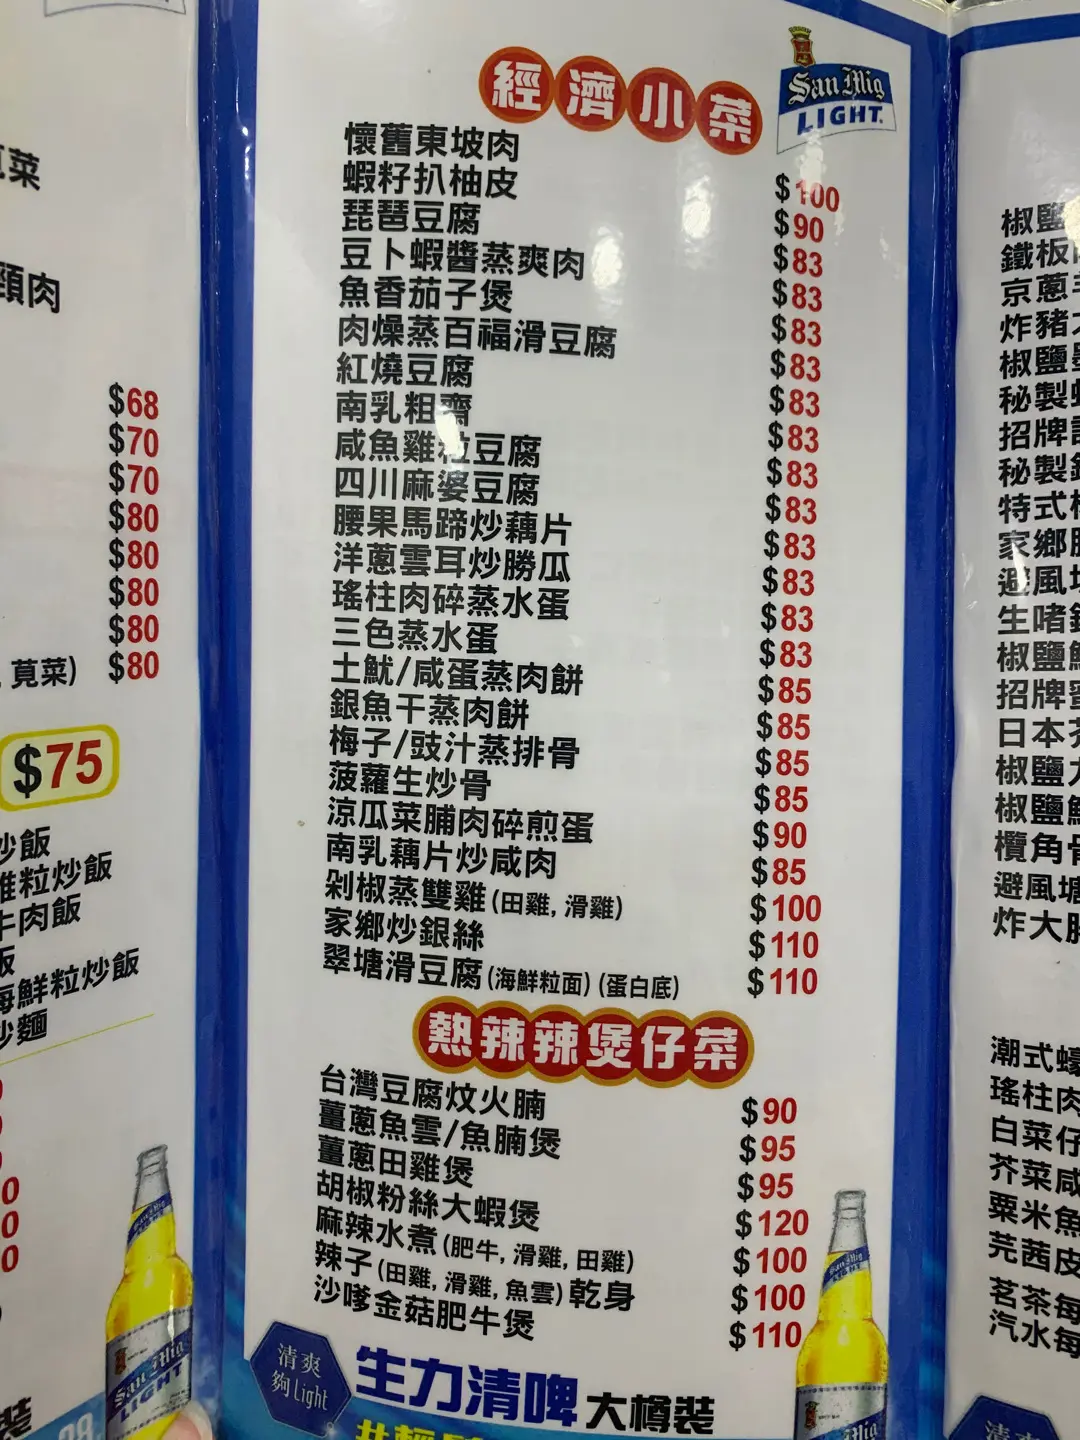 菜
頸肉
$68
$70
$70
$80
$80
$80
$80
莧菜) $80
$75
炒飯
雞粒炒飯
牛肉飯
飯
海鮮粒炒飯
炒麵
San Mig
LIGHT
經濟小菜
San Mig
LIGHT
懷舊東坡肉 $100
蝦籽扒柚皮 $90
琵琶豆腐 $83
豆卜蝦醬蒸爽肉 $83
魚香茄子煲 $83
肉燥蒸百福滑豆腐 $83
紅燒豆腐 $83
南乳粗齋 $83
咸魚雞粒豆腐 $83
四川麻婆豆腐 $83
腰果馬蹄炒藕片 $83
洋蔥雲耳炒勝瓜 $83
瑤柱肉碎蒸水蛋 $83
三色蒸水蛋 $83
土魷/咸蛋蒸肉餅 $85
銀魚干蒸肉餅 $85
梅子/豉汁蒸排骨 $85
菠蘿生炒骨 $85
涼瓜菜脯肉碎煎蛋 $90
南乳藕片炒咸肉 $85
剁椒蒸雙雞 (田雞, 滑雞) $100
家鄉炒銀絲 $110
翠塘滑豆腐 (海鮮粒面) (蛋白底) $110
熱辣辣煲仔菜
台灣豆腐炆火腩 $90
薑蔥魚雲/魚腩煲 $95
薑蔥田雞煲 $95
胡椒粉絲大蝦煲 $120
麻辣水煮 (肥牛, 滑雞, 田雞) $100
辣子 (田雞, 滑雞, 魚雲) 乾身 $100
沙嗲金菇肥牛煲 $110
清爽
夠Light
生力清啤 大樽裝
San Mig
椒鹽
鐵板
京蔥
炸豬
椒鹽
秘製
招牌
秘製
特式
家鄉
避風塘
生啫
椒鹽
招牌
日本
椒鹽
椒鹽
欖角骨
避風塘
炸大
潮式蠔
瑤柱肉
白菜仔
芥菜咸
粟米魚
芫茜皮
茗茶每
汽水每
清爽